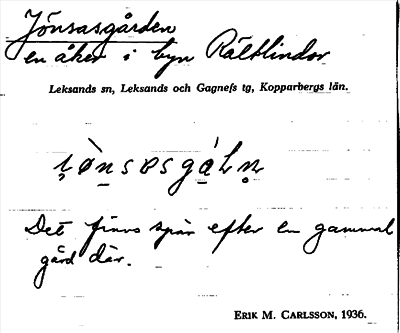 Jönsasgården
en åker i byn Rältlindor
Leksands sn, Leksands och Gagnefs tg, Kopparbergs län.
Det finns spår efter en gammal
gård där.
ERIK M. CARLSSON, 1936.